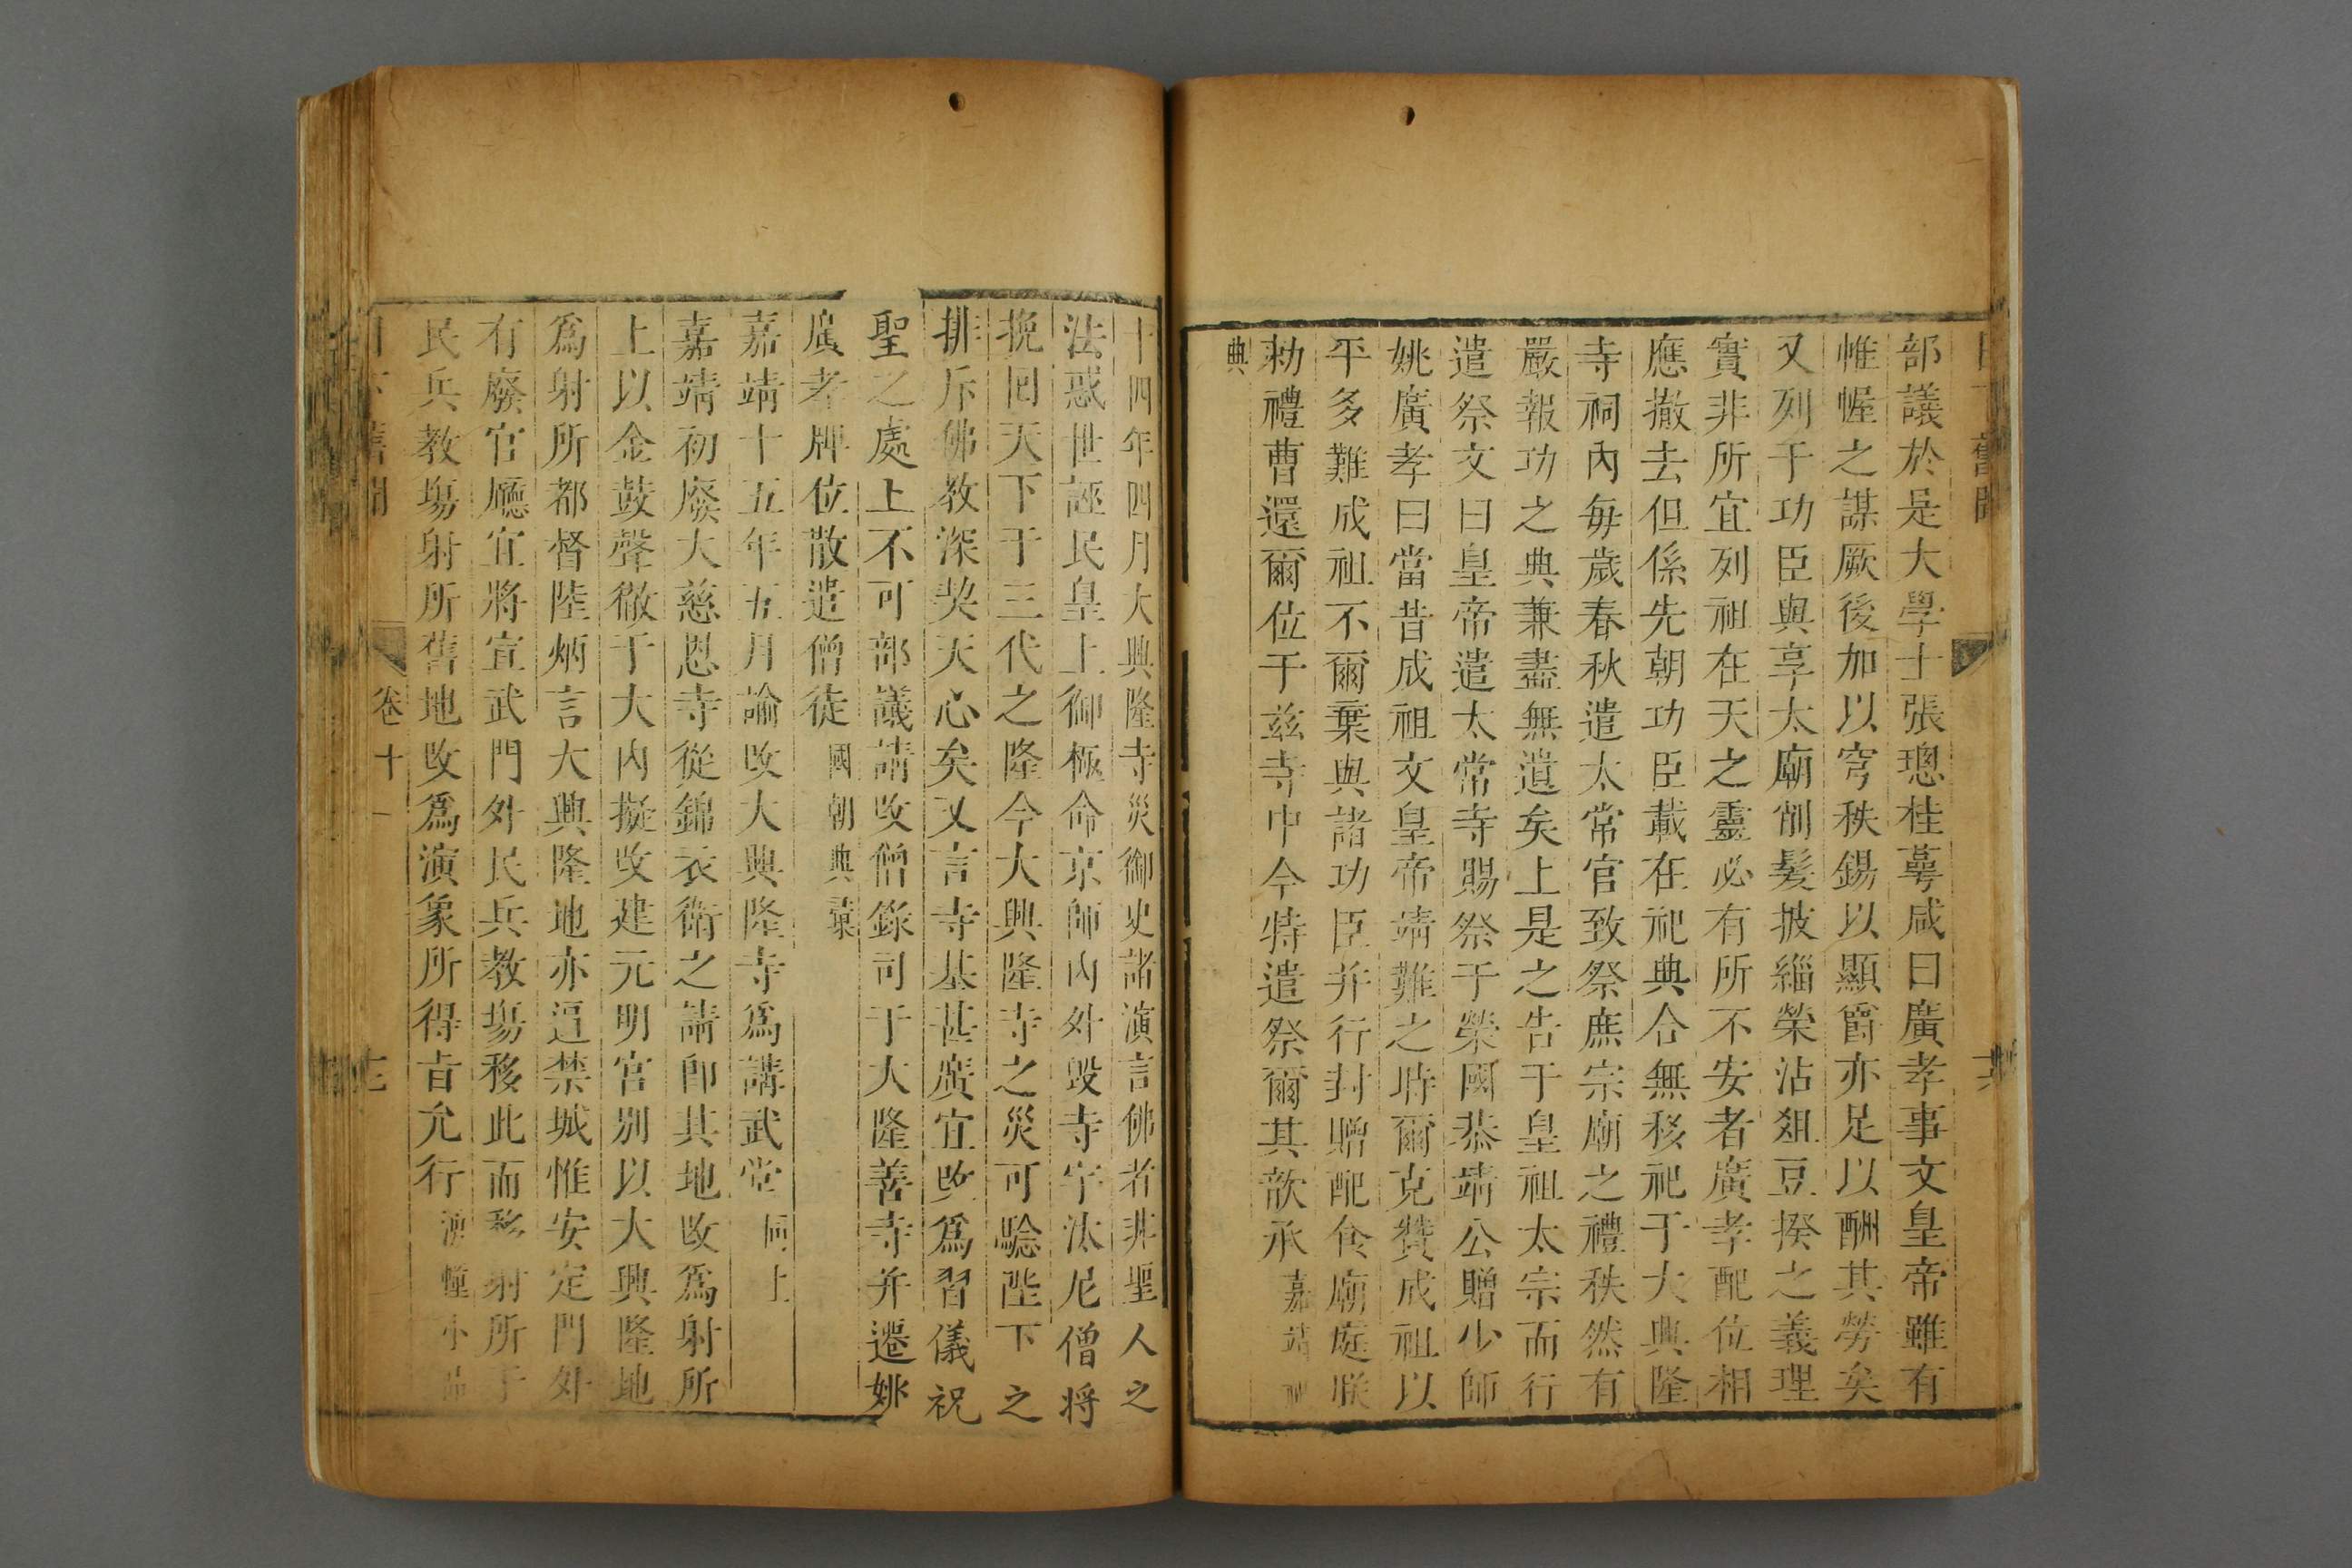 部議於是大學士張璁桂萼咸曰廣孝事文皇帝雖有
帷幄之謀厥後加以穹秩錫以顯爵亦足以酬其勞矣
又列于功臣與享太廟削髮披緇榮沾俎豆揆之義理
實非所宜列祖在天之靈必有所不安者廣孝配位相
應撤去但係先朝功臣載在祀典合無移祀于大興隆
寺祠內每歲春秋遣太常官致祭庶宗廟之禮秩然有
嚴報功之典兼盡無遺矣上是之告于皇祖太宗而行
遣祭文曰皇帝遣太常寺賜祭于榮國恭靖公贈少師
姚廣孝曰當昔成祖文皇帝靖難之時爾克贊成祖以
平多難成祖不爾棄與諸功臣并行封贈配食廟庭朕
勑禮曹還爾位于兹寺中今特遣祭爾其歆承嘉靖祀
典
十四年四月大興隆寺災御史諸演言佛者非聖人之
法惑世誣民皇上御極命京師內外毀寺宇汰尼僧將
挽回天下于三代之隆今大興隆寺之災可驗陛下之
排斥佛教深契天心矣又言寺基甚廣宜改為習儀祝
聖之處上不可部議請改僧錄司于大隆善寺并遷姚
廣孝牌位散遣僧徒國朝典彙
嘉靖十五年五月諭改大興隆寺爲講武堂同上
嘉靖初廢大慈恩寺從錦衣衛之請卽其地改爲射所
上以金鼓聲徹于大內擬改建元明宮别以大興隆地
爲射所都督陸炳言大興隆地亦逼禁城惟安定門外
有廢官廳宜將宣武門外民兵教塲移此而移射所于
民兵教塲射所舊地改爲演象所得旨允行湧幢小品
日下舊聞 卷十一